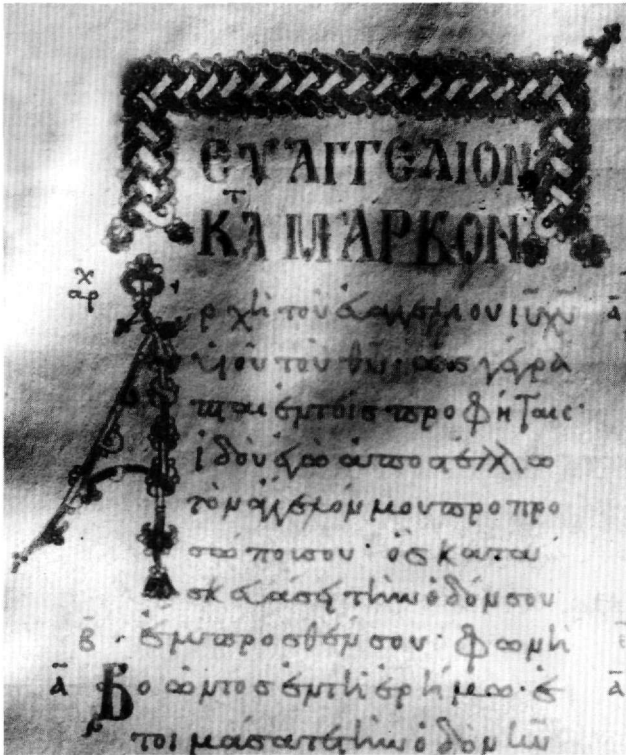 ΕΥΑΓΓΕΛΙΟΝ
ΚΑΤ ΜΑΡΚΟΝ
αρχ
Ἀρχὴ τοῦ εὐαγγελίου ιῡ χῡ ᾱ
υἱοῦ τοῦ θῡ· ὡς γέγρα
πται ἐν τοῖς προφήταις·
ἰδοὺ ἐγὼ ἀποστέλλω
τὸν ἄγγελόν μου πρὸ προ
σώπου σου· ὃς κατα
σκευάσει τὴν ὁδόν σου
β̄ ἔμπροσθέν σου· φωνὴ
ᾱ Βοῶντος ἐν τῇ ἐρήμω· ἑ ᾱ
τοιμάσατε τὴν ὁδὸν κῡ